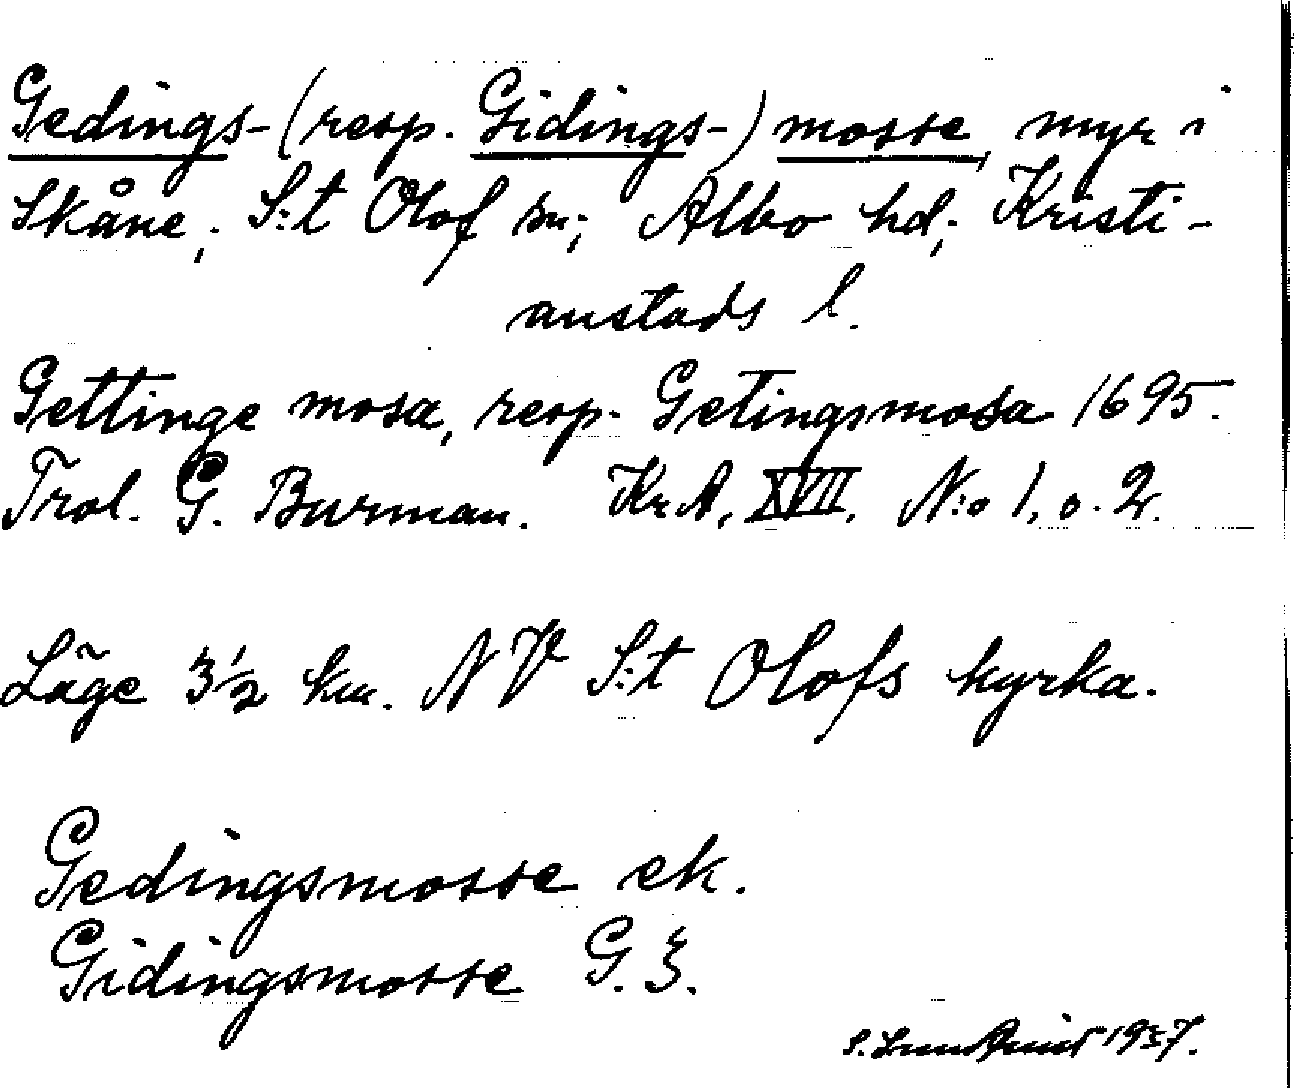 Gedings-(resp. Gidings-) mosse, myr i
Skåne; S:t Olof sn; Albo hd; Kristi-
anstads l.
Gettinge mosa, resp. Getingsmosa 1695.
Trol. G. Burman. Kr.A. XVII. N:o 1, o. 2.
Läge 3½ km. NV S:t Olofs kyrka.
Gedingsmosse ek.
Gidingsmosse G.
1937.